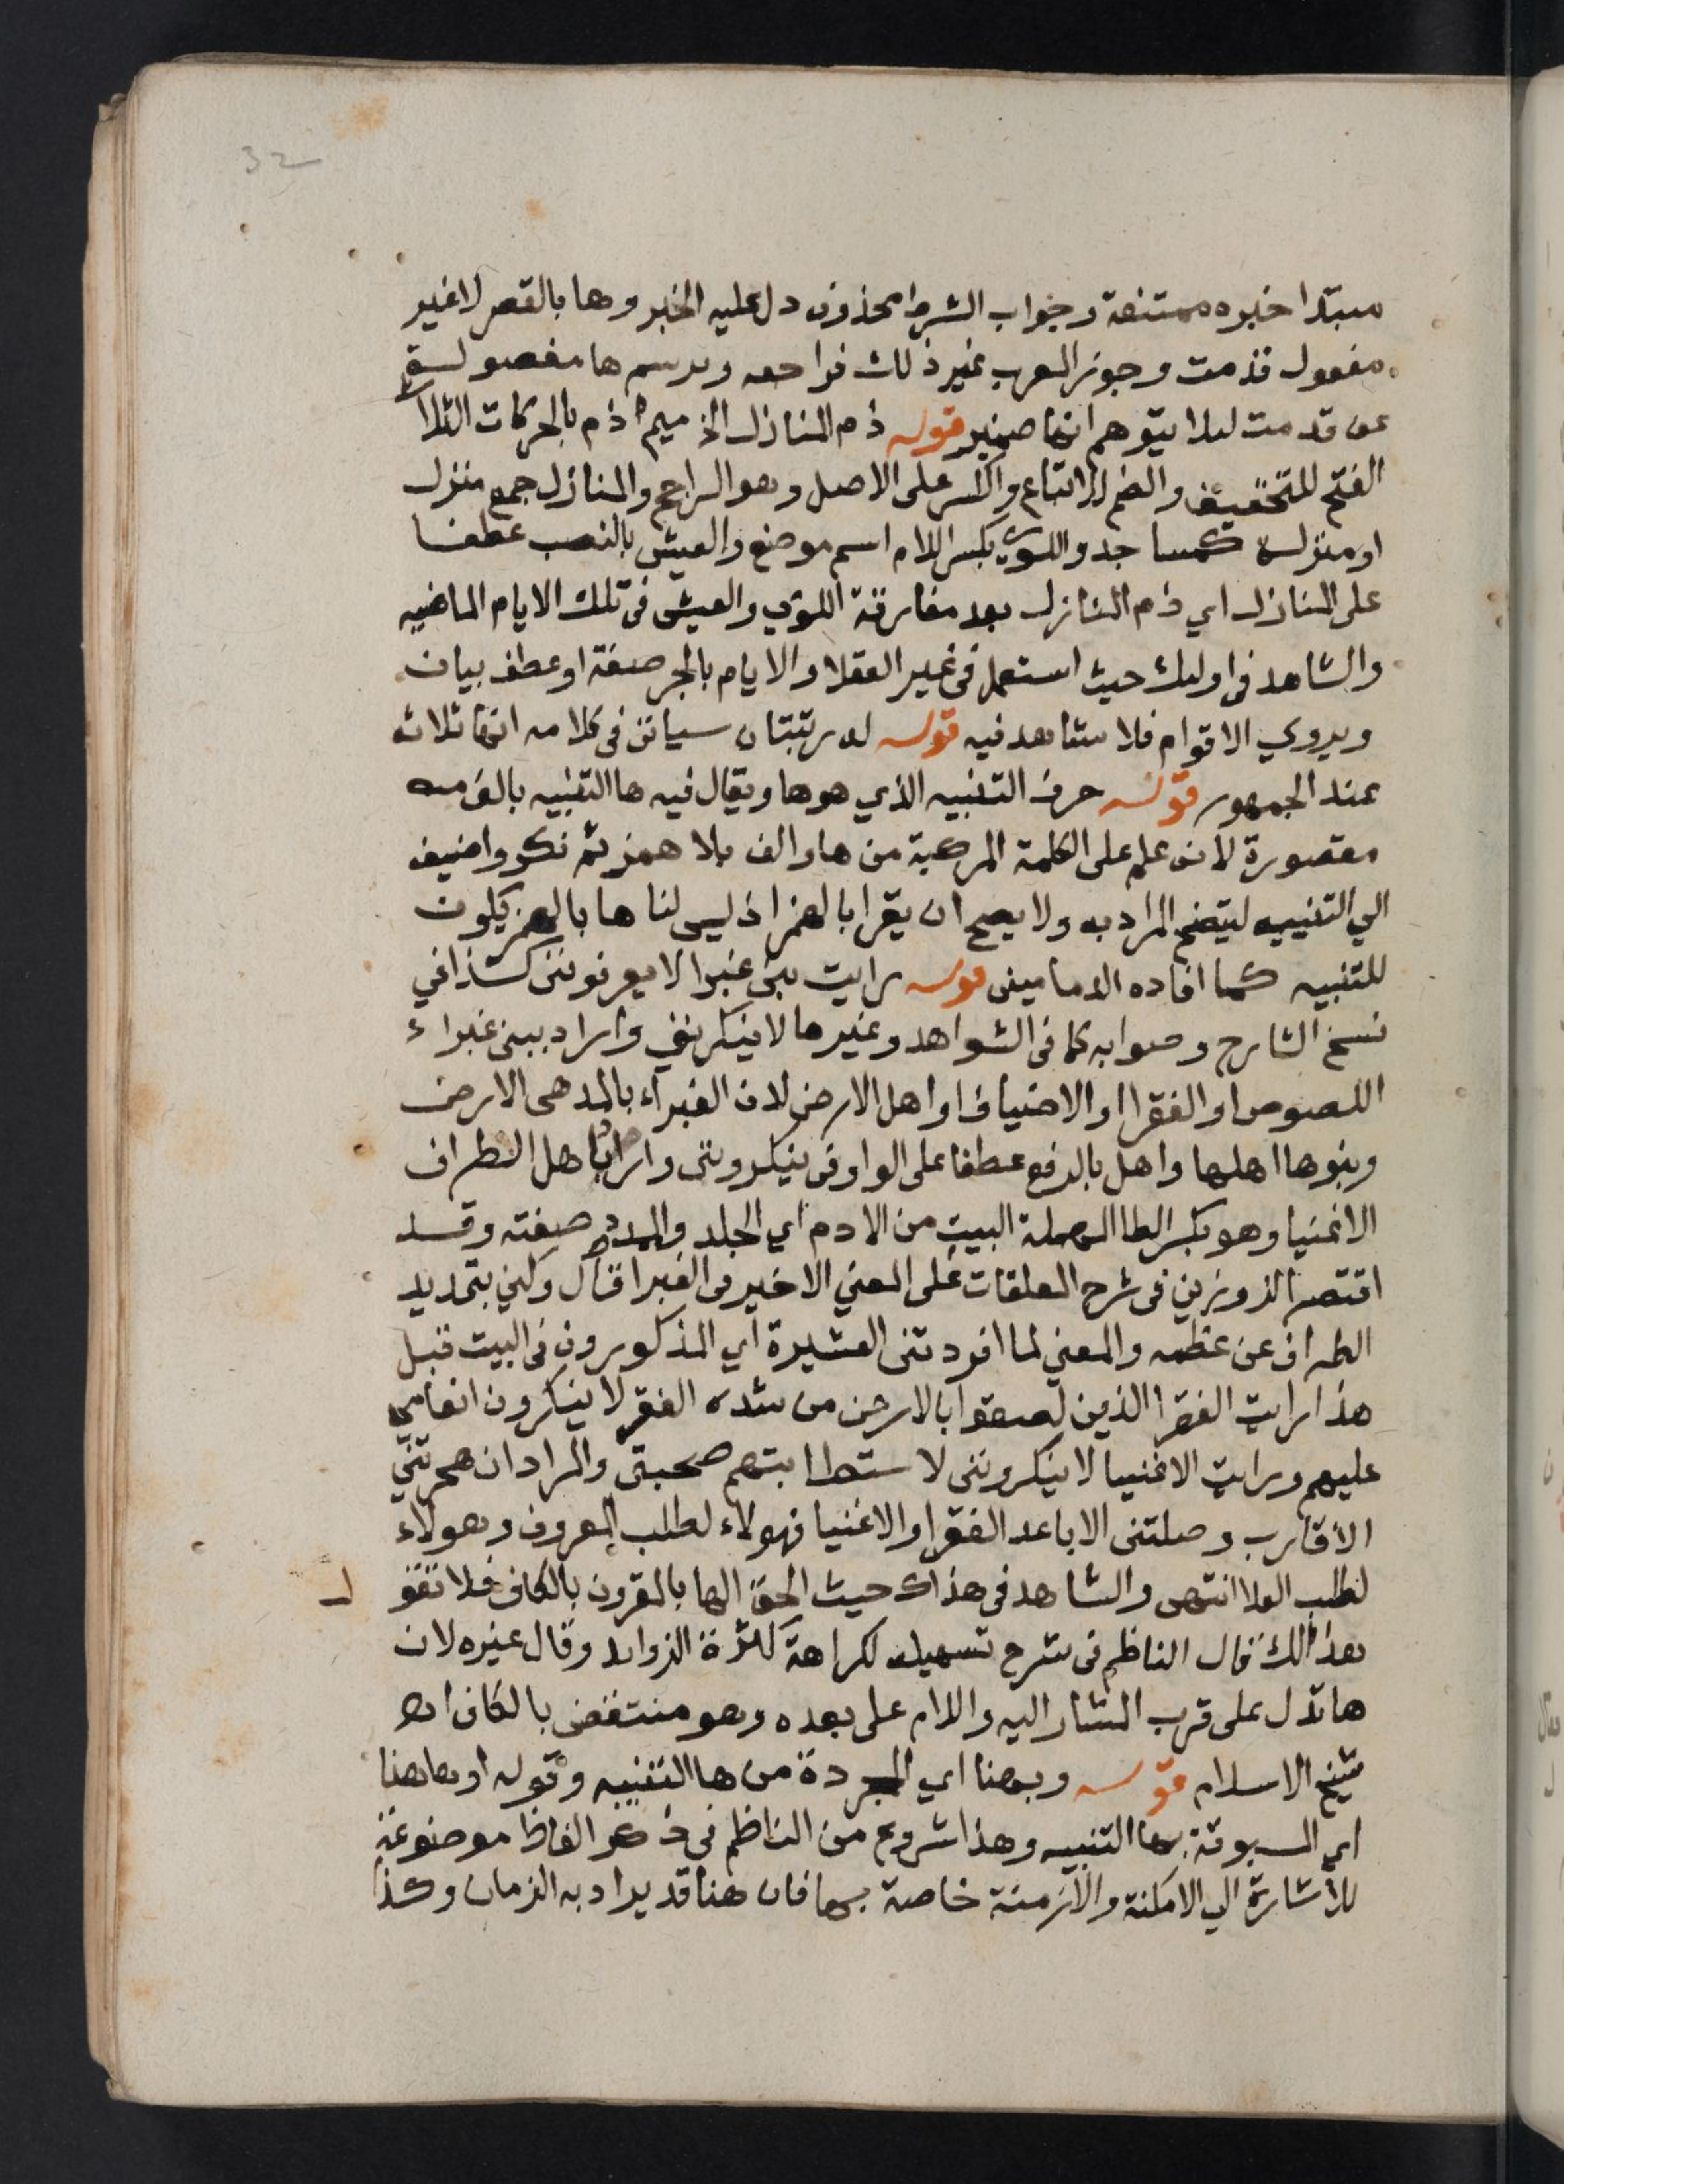 32
مبتدا خبره ممتنعة وجواب الشرط محذوف دل عليه الخبر وها بالقصر لا غير
مفعول قدمت وجوز المعرب غير ذلك فراجعه ويرسم ها مفصولة
عن قدمت ليلا يتوهم انها ضمير قوله ذم المنازل الخ ميم ذم بالحركات الثلاث
الفتح للتخفيف والضم للاتباع والكسر على الاصل وهو الراجح والمنازل جمع منزل
او منزلة كمساجد واللوي بكسر اللام اسم موضع والعيش بالنصب عطفا
على المنازل اي ذم المنازل بعد مفارقة اللوي والعيش في تلك الايام الماضيه
والشاهد في اوليك حيث استعمل في غير العقلا والايام بالجر صفة او عطف بيان
ويروي الاقوام فلا شاهد فيه قوله له رتبتان سياتي في كلامه انها ثلاث
عند الجمهور قوله حرف التنبيه الذي هو ها ويقال فيه ها التنبيه بالف
مقصورة لانه علم على الكلمة المركبة من ها والف بلا همز ثم نكر واضيف
الي التنبيه ليتضح المراد به ولا يصح ان يقرا بالهمز اذ ليس لنا ها بالهمز يكون
للتنبيه كما افاده الدماميني قوله رايت بني غبرا لا يعرفونني كذا في
نسخ الشارح وصوابه كما في الشواهد وغيرها لا ينكرونني واراد ببني غبراء
اللصوص او الفقرا او الاضياف او اهل الارض لان الغبراء بالمد هي الارض
وبنوها اهلها واهل بالرفع عطفا على الواو في ينكرونني واراد باهل الطراف
الاغنيا وهو بكسر الطا المهملة البيت من الادم اي الجلد والممدد صفته وقد
اقتصر الزوزني في شرح المعلقات على المعني الاخير في الغبرا قال وكني بتمديد
الطراف عن عظمه والمعني لما افردتني العشيرة اي المذكورون في البيت قبل
هذا رايت الفقرا الذين لصقوا بالارض من شده الفقر لا ينكرون انعامي
عليهم ورايت الاغنيا لا ينكرونني لاستطابتهم صحبتي والمراد ان هجرتني
الاقارب وصلتني الاباعد الفقرا والاغنيا فهولاء لطلب المعروف وهولاء
لطلب العلا انتهى والشاهد في هذاك حيث الحق الها بالمقرون بالكاف فلا تقو ل
هذالك قال الناظم في شرح تسهيله لكراهة كثرة الزوايد وقال غيره لان
ها تدل على قرب المشار اليه واللام على بعده وهو منتقض بالكاف اهـ
شيخ الاسلام قوله وبهنا اي المجردة من ها التنبيه وقوله او هاهنا
اي المسبوقة بها التنبيه وهذا شروع من الناظم في ذكر الفاظ موضوعة
للاشارة الي الامكنة والازمنة خاصة بها فان هنا قد يراد به الزمان وكذا